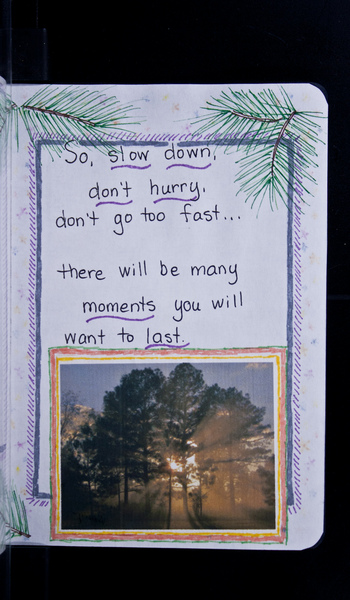 So, slow down,
don't hurry.
don't go too fast...
there will be many
moments you will
want to last.